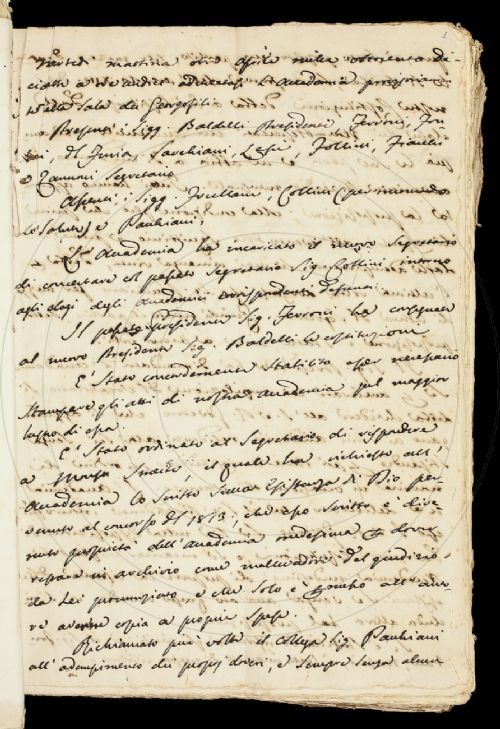 Martedì mattina otto Aprile mille ottocento di-
ciotto a ore undici adunatasi l'Accademia
nella Sala dei Georgofili
Presenti i Sigg. Baldelli Presidente, Ferroni, Fon-
tani, Del Furia, Sarchiani, Lessi, Follini, Fiacchi
e Zannoni Segretario
Assenti i Sigg. Collini (per incomodo
di salute) e Paubiani.
L'Accademia ha incaricato il nuovo Segretario
di concertare col passato Segretario Sig. Collini, intorno
agli elogi degli Accademici corrispondenti defunti.
Il passato presidente Sig. Ferroni ha consegnato
al nuovo Presidente Sig. Baldelli le costituzioni
È stato concordemente stabilito esser necessario
stampare gli atti di nostra accademia pel maggior
lustro di essa.
È stato ordinato al Segretario di rispondere
a il quale ha richiesto all'
Accademia lo Scritto Sull'Esistenza di Dio per-
venuto al concorso del 1813; che esso scritto è dive-
nuto proprietà dell'Accademia medesima e dover
restare in archivio come mallevadore del giudizio
da lei pronunziato e che solo è all'auto-
re averne copia a proprie spese.
Richiamato più volte il collega Sig. Paubiani
all'adempimento dei proprj doveri, e sempre senza alcun